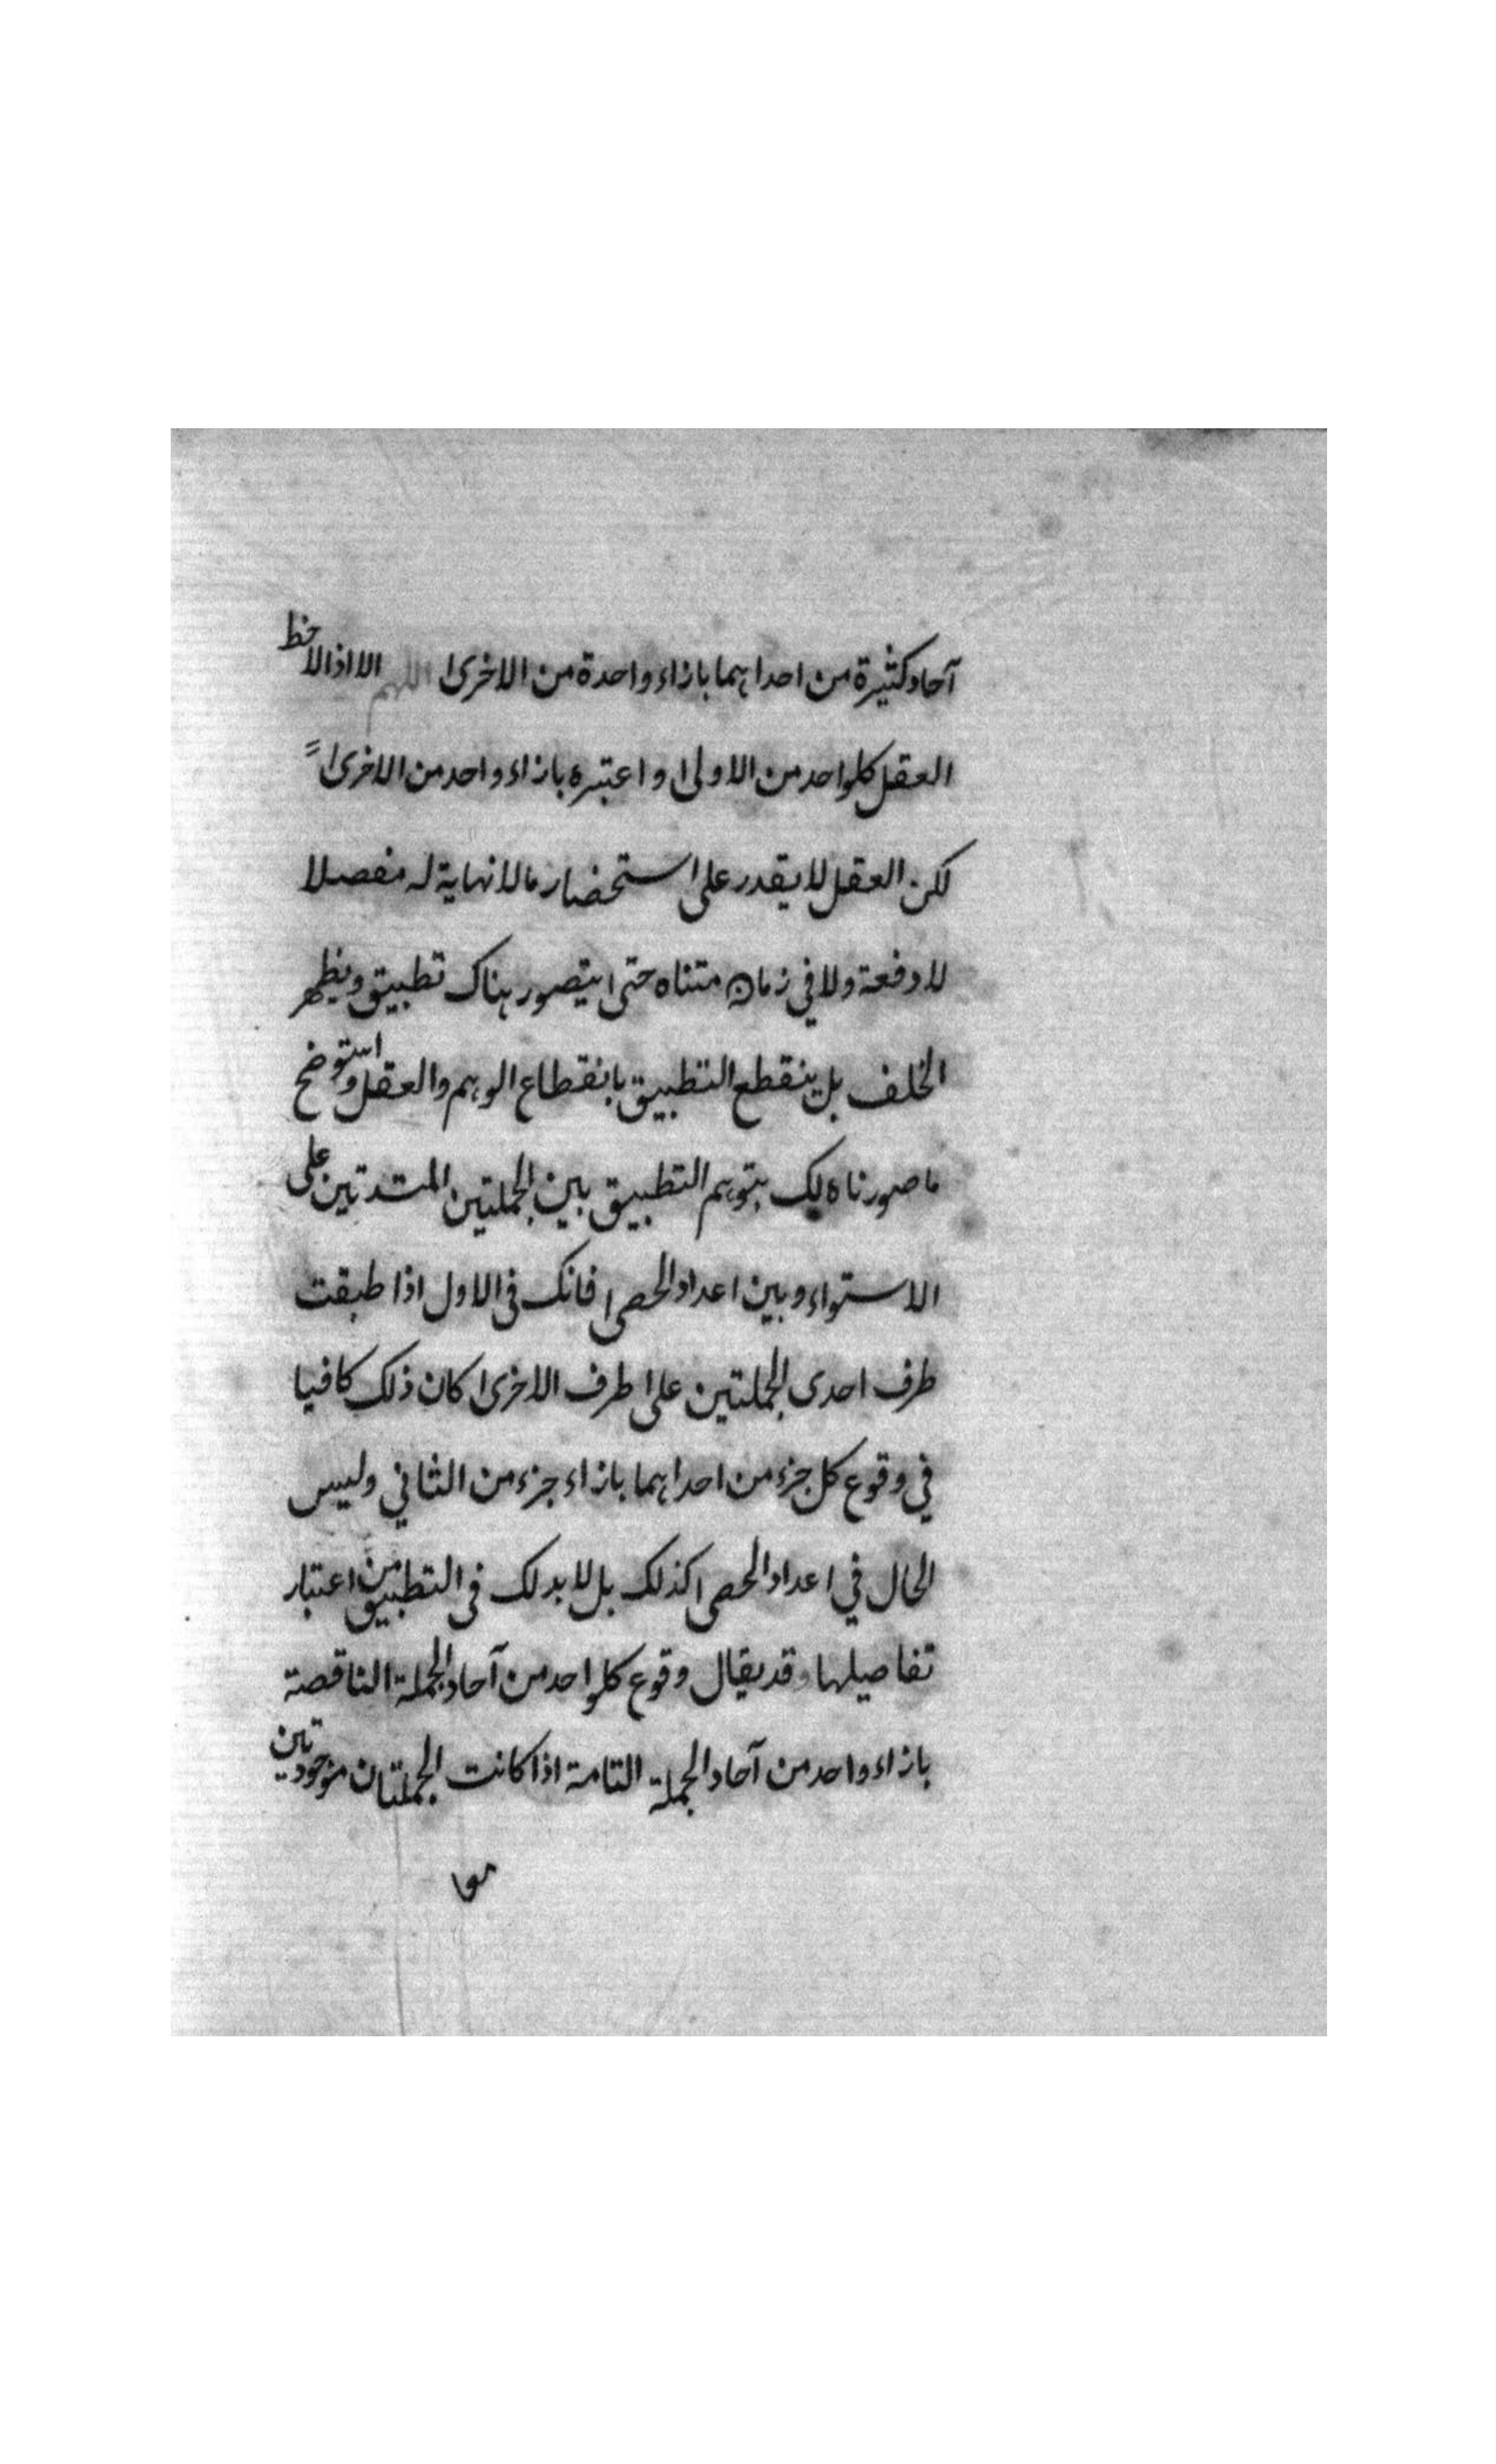 آحاد كثيرة من احداهما بازاء واحدة من الاخرى اللهم الا اذا لاحظ
العقل كلواحد من الاولى واعتبره بازاء واحد من الاخرى
لكن العقل لا يقدر على استحضار مالا نهاية له مفصلا
لا دفعة ولا في زمان متناه حتى يتصور هناك تطبيق ويظهر
الخلف بل ينقطع التطبيق بانقطاع الوهم والعقل واستوضح
ما صورناه لك بتوهم التطبيق بين الجملتين الممتدتين على
الاستواء وبين اعداد الحصى فانك فى الاول اذا طبقت
طرف احدى الجملتين على طرف الاخرى كان ذلك كافيا
في وقوع كل جزء من احداهما بازاء جزء من الثاني وليس
الحال في اعداد الحصى كذلك بل لابد لك فى التطبيق من اعتبار
تفاصيلها وقد يقال وقوع كلواحد من آحاد الجملة الناقصة
بازاء واحد من آحاد الجملة التامة اذا كانت الجملتان موجودتين